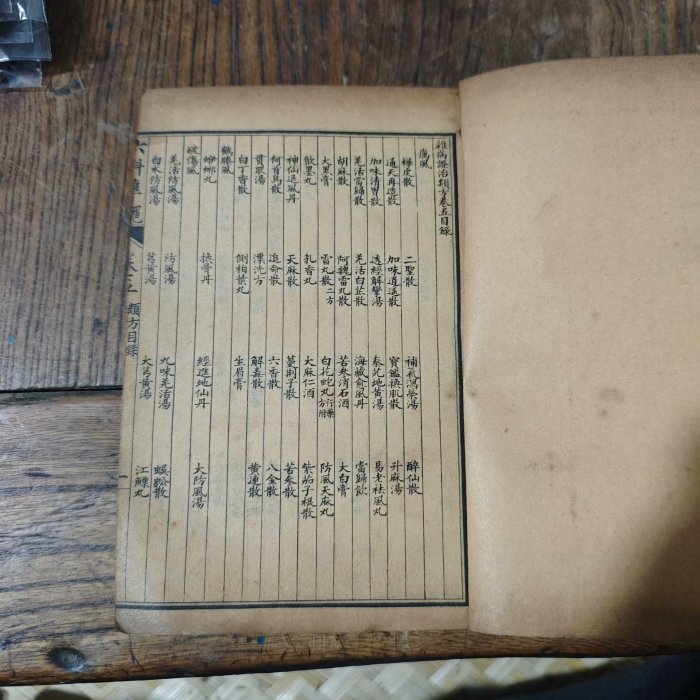 雜病證治類方卷五目錄
癘風
樺皮散 二聖散 補氣瀉榮湯 醉仙散
通天再造散 加味逍遙散 寶鑑換肌散 升麻湯
加味清胃散 透經解攣湯 秦艽地黃湯 易老祛風丸
羌活當歸散 羌活白芷散 海藏愈風丹 當歸飲
胡麻散 阿魏雷丸散 苦參消石酒 大白膏
大黑膏 雷丸散二方 白花蛇丸行藥方附 防風天麻丸
墨丸 乳香丸 大麻仁酒 子根散
神仙退風丹 天麻散 蔓荊子散 苦參散
何首烏散 追命散 六香散 八金散
貫眾湯 洗方 解毒散 黃連散
白丁香散 側柏葉丸 生眉膏
鶴膝風
蟠螂丸 換骨丹 經進地仙丹 大防風湯
破傷風
羌活防風湯 防風湯 九味羌活湯 蜈蚣散
白朮防風湯 芎黃湯 大芎黃湯 江鰾丸
六科準繩 卷之五 類方目錄 一